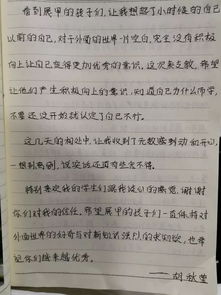 看到展甲的孩子们,让我想起了小时候的自己
以前的自己,对于外面的世界一片空白,完全没有积极
向上让自己变得更加优秀的意识。这次来支教,希望
让他们产生积极向上的意识,知道自己为什么而学,
不要还没开始就认定了自己不行。
这几天的相处中,让我收到了无数感动和开心,
一想到要离别,说实话还真有些舍不得。
特别喜欢我的学生们跟我谈心的感觉,谢谢
你们对我的信任。希望展甲的孩子们一直保持对
外面世界的好奇与对新知识强烈的求知欲,也希
望你们越来越优秀。
——胡